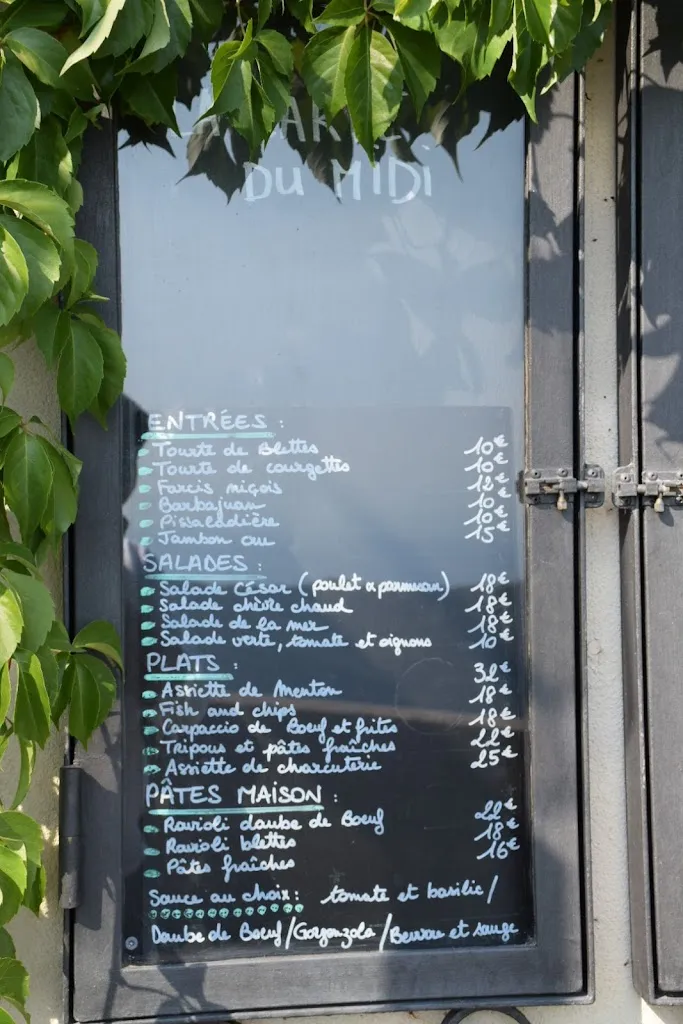 LA CARTE
DU MIDI
ENTRÉES :
Tourte de Blettes 10€
Tourte de courgettes 10€
Farcis niçois 12€
Barbajuan 10€
Pissaladière 10€
Jambon cru 15€
SALADES :
Salade César (poulet & parmesan) 18€
Salade chèvre chaud 18€
Salade de la mer 18€
Salade verte, tomate et oignons 10€
PLATS :
Assiette de Menton 32€
Fish and chips 18€
Carpaccio de Boeuf et frites 18€
Tripous et pâtes fraîches 22€
Assiette de charcuterie 25€
PÂTES MAISON :
Ravioli daube de Boeuf 22€
Ravioli blettes 18€
Pâtes fraîches 16€
Sauce au choix : tomate et basilic/
Daube de Boeuf/Gorgonzola/Beurre et sauge